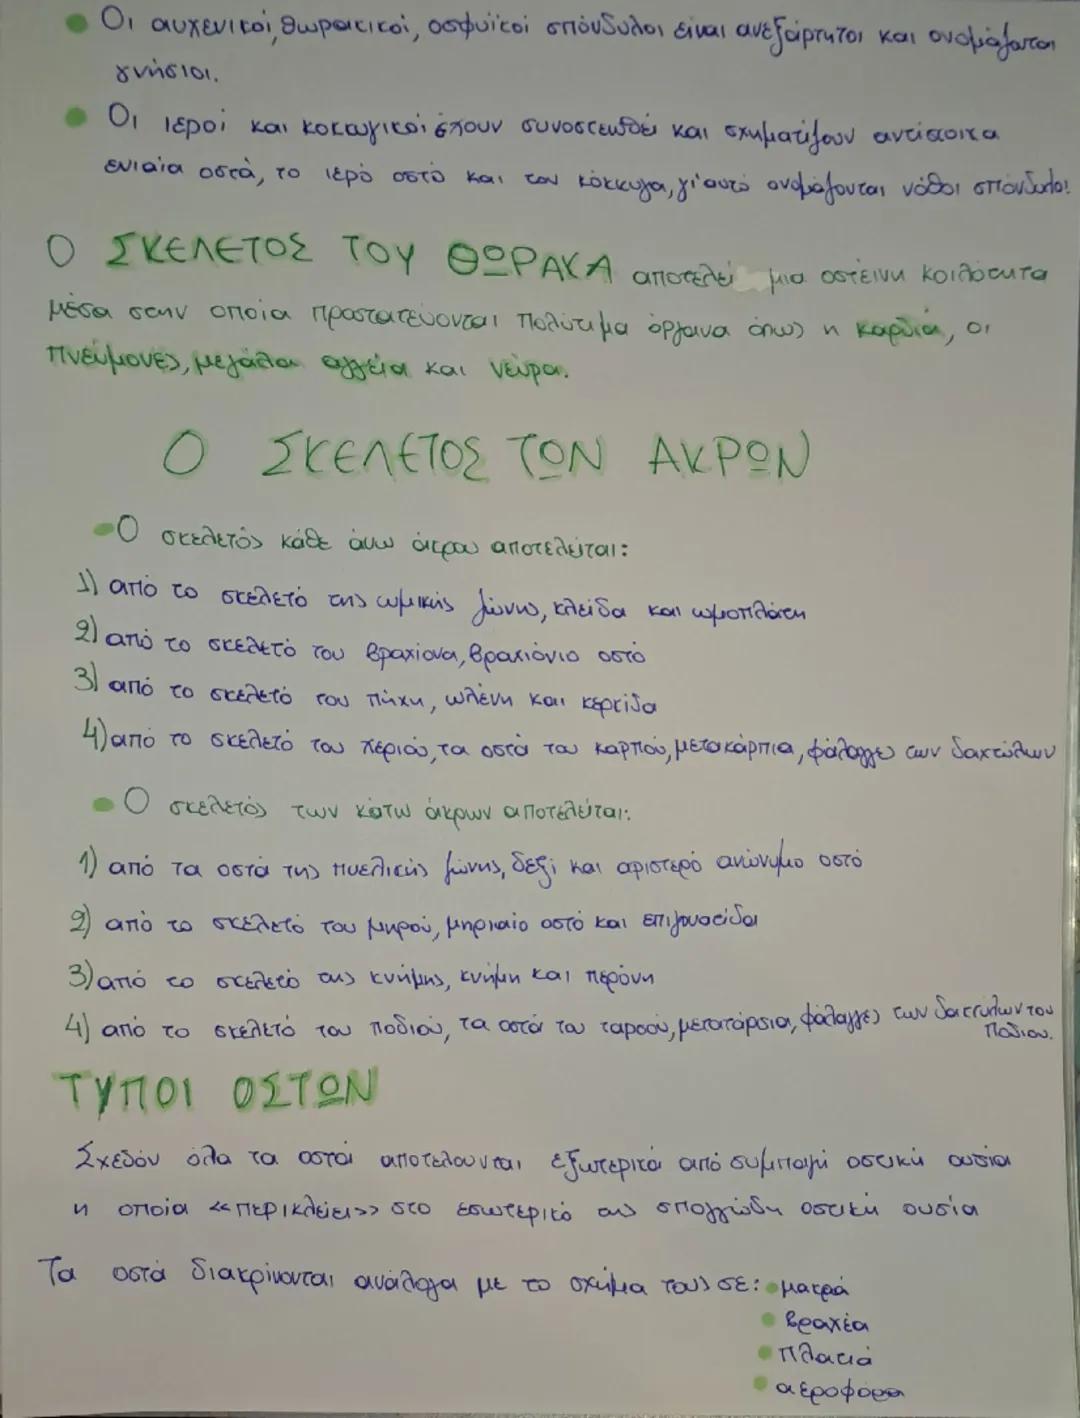 Οι αυχενικοί, θωρακικοί, οσφυϊκοί σπόνδυλοι είναι ανεξάρτητοι και ονομάζονται
γνήσιοι.
Οι ιεροί και κοκκυγικοί έχουν συνοστεωθεί και σχηματίζουν αντίστοιχα
ενιαία οστά, το ιερό οστό και τον κόκκυγα, γι'αυτό ονομάζονται νόθοι σπόνδυλοι
Ο ΣΚΕΛΕΤΟΣ ΤΟΥ ΘΩΡΑΚΑ αποτελεί μια οστέινη κοιλότητα
μέσα στην οποία προστατεύονται πολύτιμα όργανα όπως η καρδιά, οι
πνεύμονες, μεγάλα αγγεία και νεύρα.
Ο ΣΚΕΛΕΤΟΣ ΤΩΝ ΑΚΡΩΝ
Ο σκελετός κάθε άνω άκρου αποτελείται:
1) από το σκελετό της ωμικής ζώνης, κλείδα και ωμοπλάτη
2) από το σκελετό του βραχίονα, βραχιόνιο οστό
3) από το σκελετό του πήχη, ωλένη και κερκίδα
4) από το σκελετό του χεριού, τα οστά του καρπού, μετακάρπια, φάλαγγες των δαχτύλων
Ο σκελετός των κάτω άκρων αποτελείται:
1) από τα οστά της πυελικής ζώνης, δεξί και αριστερό ανώνυμο οστό
2) από το σκελετό του μηρού, μηριαίο οστό και επιγονατίδα
3) από το σκελετό της κνήμης, κνήμη και περόνη
4) από το σκελετό του ποδιού, τα οστά του ταρσού, μετατάρσια, φάλαγγες των δακτύλων του
ποδιου.
ΤΥΠΟΙ ΟΣΤΩΝ
Σχεδόν όλα τα οστά αποτελούνται εξωτερικά από συμπαγή οστική ουσία
η οποία «περικλείει» στο εσωτερικό της σπογγώδη οστική ουσία
Τα οστά διακρίνονται ανάλογα με το σχήμα τους σε: μακρά
βραχέα
πλατιά
αεροφόρα